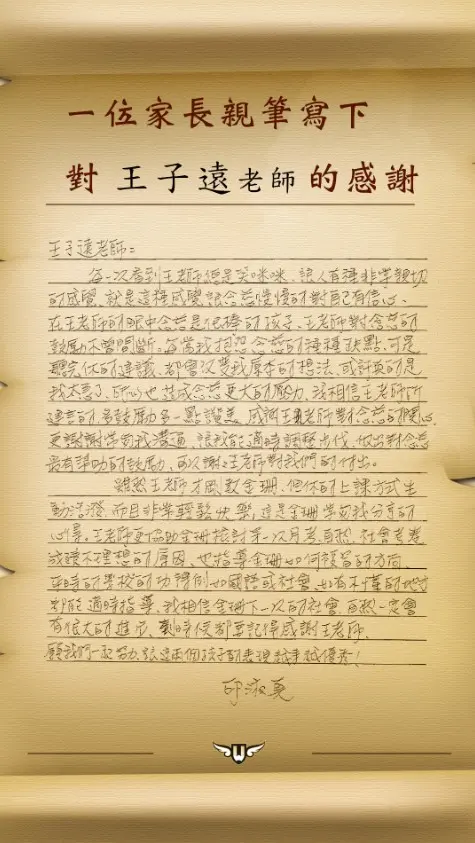 一位家長親筆寫下
對 王子遠老師 的感謝
王子遠老師:
每一次看到王老師總是笑咪咪、讓人有種非常親切
的感覺、就是這種感覺讓念慈慢慢的對自己有信心、
在王老師的眼中念慈是很棒的孩子、王老師對念慈的
鼓勵不曾間斷。每當我抱怨念慈的種種缺點、可是
聽完你的建議、都會改變我原本的想法、或許真的是
我太急了、所以也造成念慈更大的壓力、我相信王老師所
建言的多鼓勵多一點讚美、感謝王老師對念慈的關心、
更謝謝常與我溝通、讓我能適時調整
最有幫助的鼓勵、再次謝謝王老師對我們的付出。
雖然王老師才剛教金珊、但你的上課方式生
動活潑、而且非常輕鬆快樂、這是金珊學習我分享的
心得。王老師更協助金珊檢討第一次月考、自然、社會考卷
成績不理想的原因、也指導金珊如何複習的方向、
在時的學校的功課例如國語或社會、如有不懂的地方
都能適時指導、我相信金珊下一次的社會、自然一定會
有很大的進步、到時候都要記得感謝王老師、
願我們一起努力、讓這兩個孩子的表現越來越優秀!
邱淑